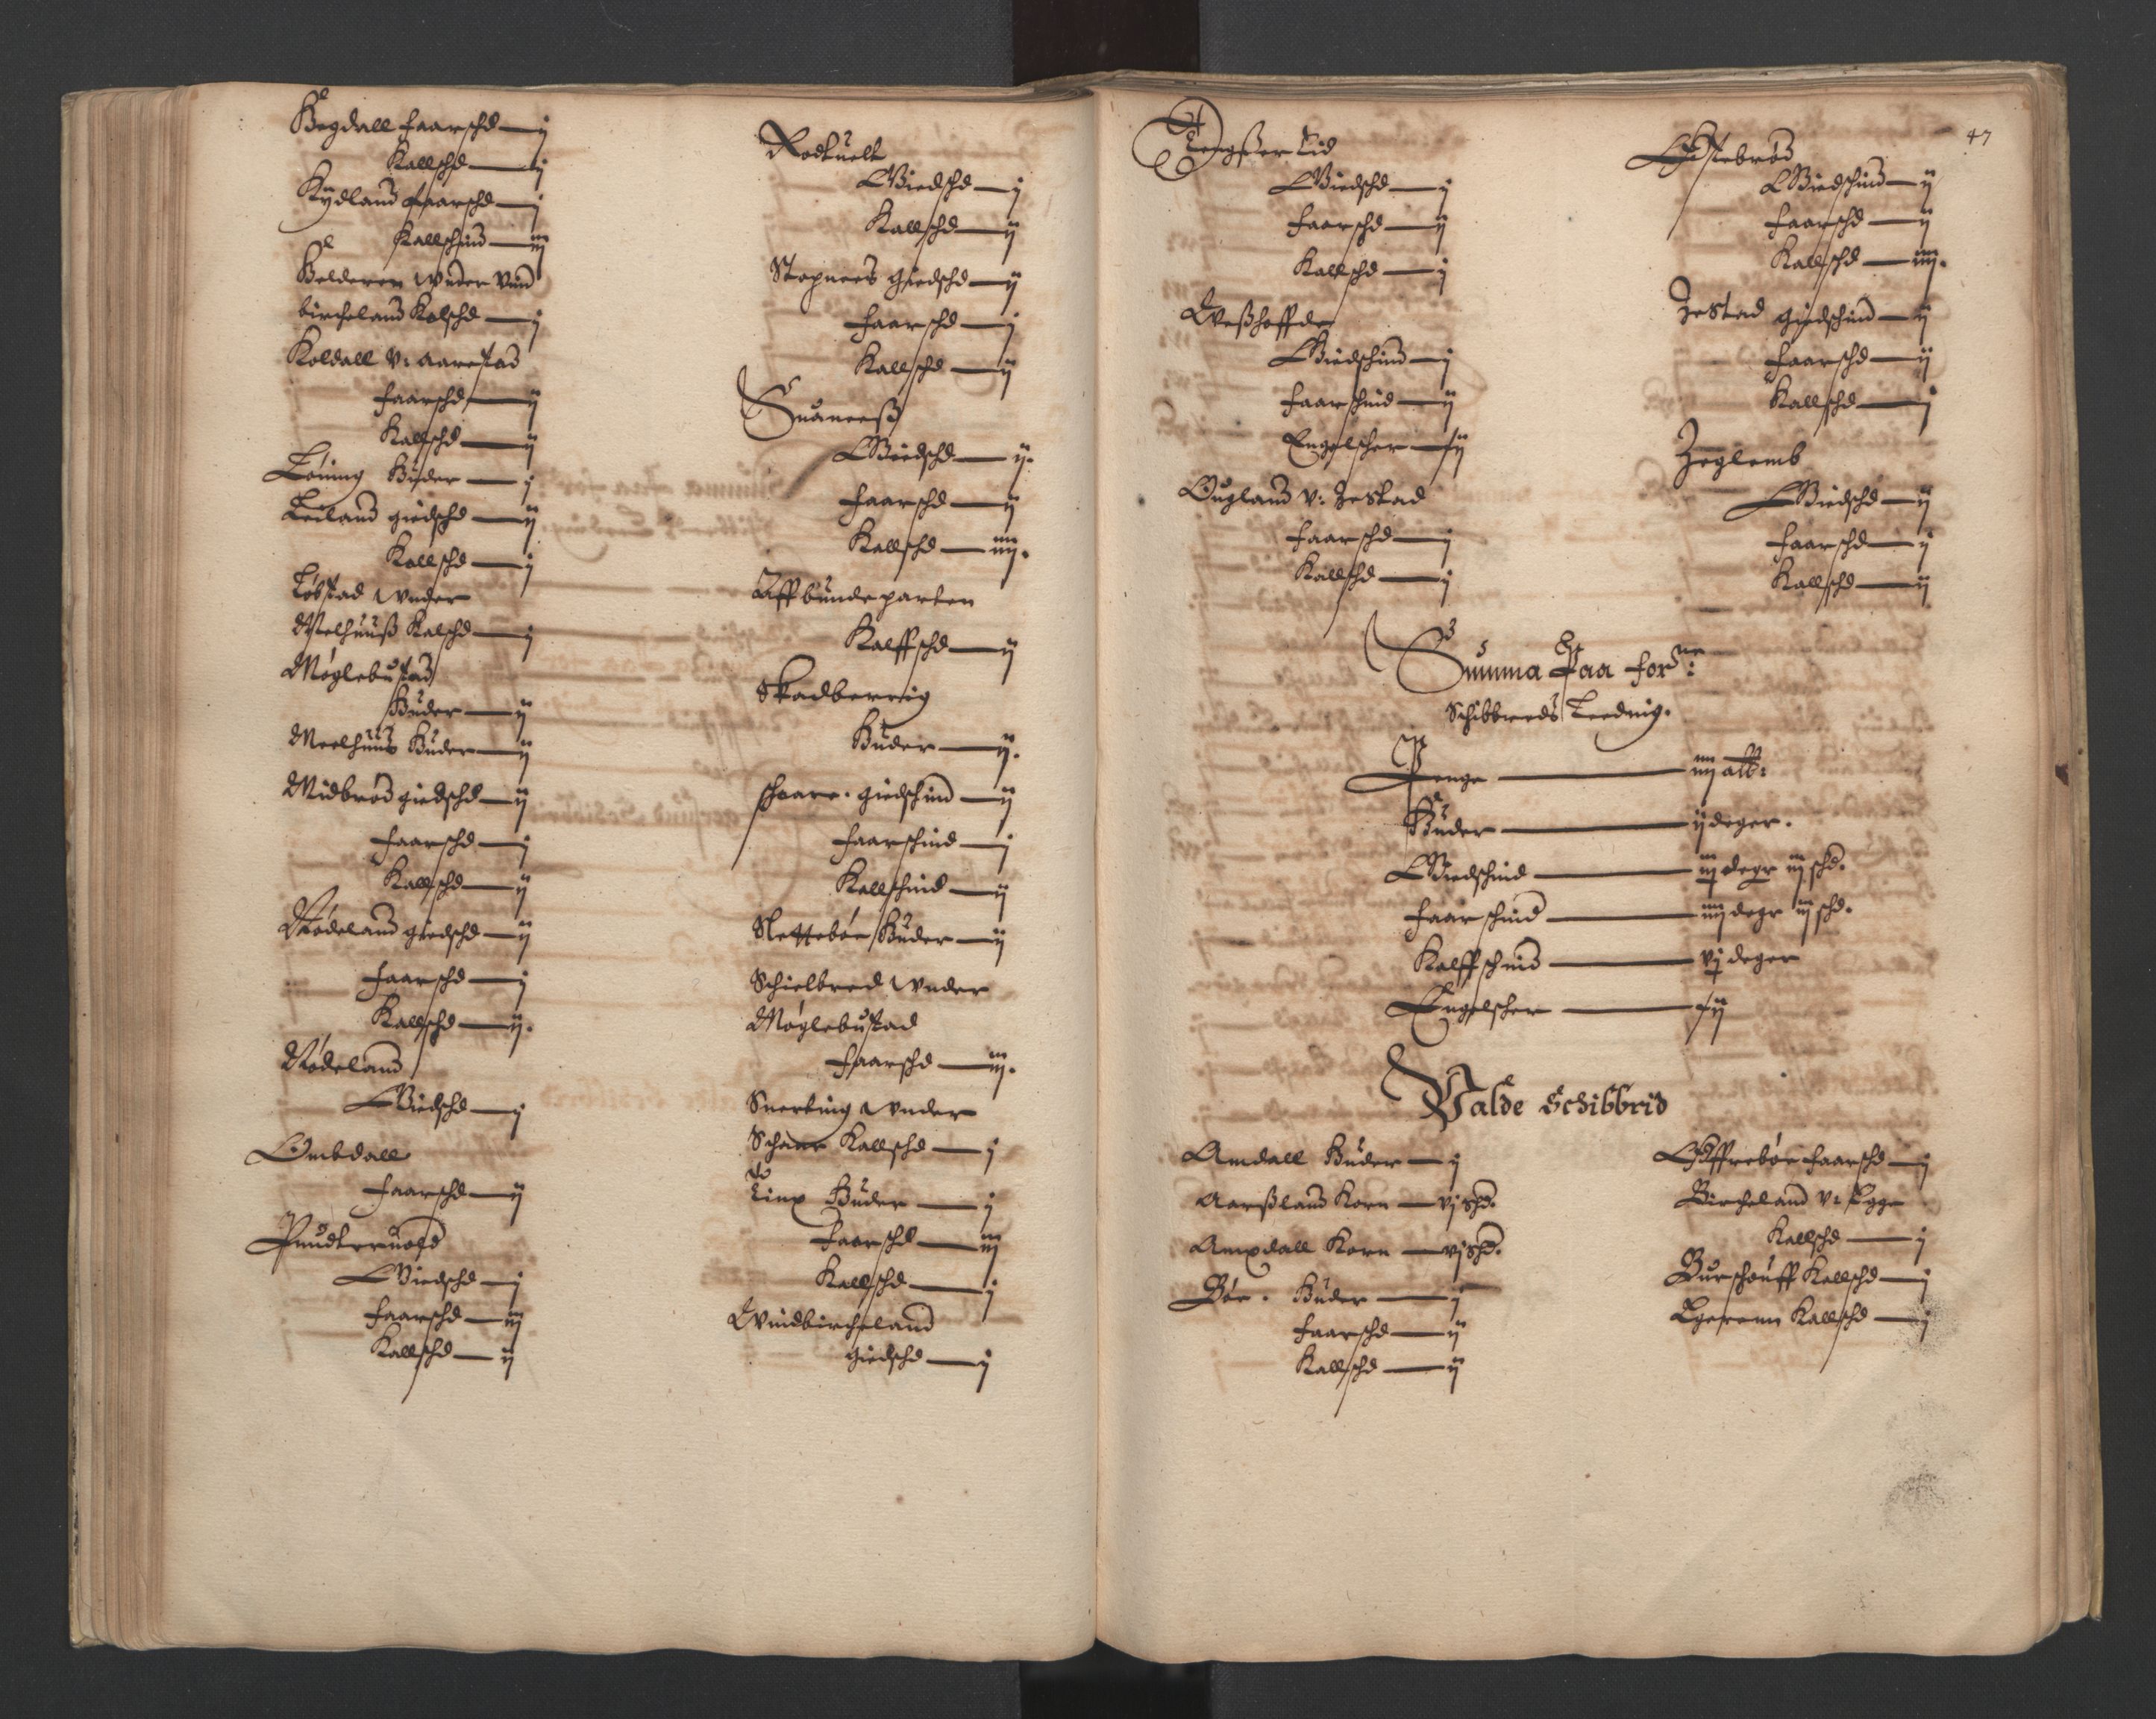 Begdall faarschd — j
Kallschd — j
Kydland faarschd — j
Kallschind — iij
Helderen wnder Vind
bircheland Kalschd — j
Koldall v: Aarestad
faarschd — ij
Kallschd — ij
Löning Huder — j
Leiland giedschd — ij
Kallschd — j
Löbstad wnder
Melhuuß Kalschd — j
Möglebustad
Huder — ij
Meelhuus Huder — ij
Midbrød giedschd — ij
faarschd — j
Kallschd — ij
Nödeland giedschd — ij
faarschd — j
Kallschd — ij.
Nödeland
Giedschd — j
Ombdall
faarschd — ij
Pudteruold
Giedschd — j
faarschd — iij
Kallschd — ij
Rodtuelt
Giedschd — j
Kallschd — ij
Stapnees giedschd — ij
faarschd — j
Kallschd — ij
Suaneeß
Giedschd — ij.
faarschd — ij
Kallschd — iiij.
Aff bunde parten
Kalffschd — ij
Skadberrig
Huder — ij.
schaare. giedschind — ij
faarschind — j
Kallschind — ij
Sletteböe Huder — ij
Schielbred wnder
Möglebustad
faarschd — iij.
Suerting wnder
Schaar Kallschd — j
Tinx Huder — j
faarschd — iij
Kallschd — j
Vindbircheland
giedschd — j
47
Tengßer Eid
Giedschd — j
faarschd — ij
Kallschd — j
Veßhoffde
Giedschind — j
faarschind — ij
Engelscher — ij
Ougland v: Jestad
faarschd — j
Kallschd — j
Østebrød
Giedschind — ij
faarschd — ij
Kallschd — iiij.
Jestad giedschind — ij
faarschd — ij
Kallschd — j
Jeglemb
Giedschd — ij
faarschd — j
Kallschd — ij
Summa Paa forne:
Schibbreds Leednig.
Penge — iiij alb:
Huder — ij deger.
Giedschind — iij degr iij schd.
faar schind — iiij degr iij schd.
Kalffschind — vj deger
Engelscher — ij
Walde Schibbrid
Amdall Huder — j
Aarßland Korn — vj Spd.
Ampdall Korn — vj Spd.
Böe. Huder — j
faarschd — ij
Kallschd — ij
Öffreböe faarschd — j
Bircheland v: Egge
Kallschd — j
Burschouff Kallschd — j
Egeremn Kallschd — j